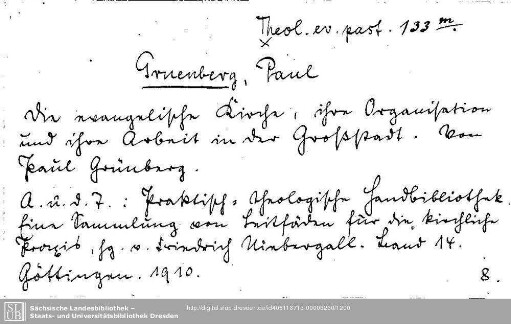 Theol. ev. past. 133 m.
Gruenberg, Paul
Die evangelische Kirche, ihre Organisation
und ihre Arbeit in der Großstadt. Von
Paul Grünberg.
A. u. d. T. : Praktisch-theologische Handbibliothek.
Eine Sammlung von Leitfäden für die kirchliche
Praxis, hg. v. Friedrich Niebergall. Band 14.
Göttingen. 1910. 8.
Sächsische Landesbibliothek –
Staats- und Universitätsbibliothek Dresden